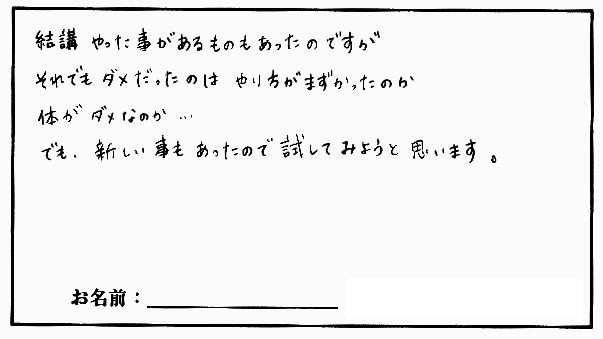 結講 やった事があるものもあったのですが
それでも ダメだったのは やり方がまずかったのか
体が ダメなのか…
でも、新しい事も あったので 試してみようと 思います。
お名前：